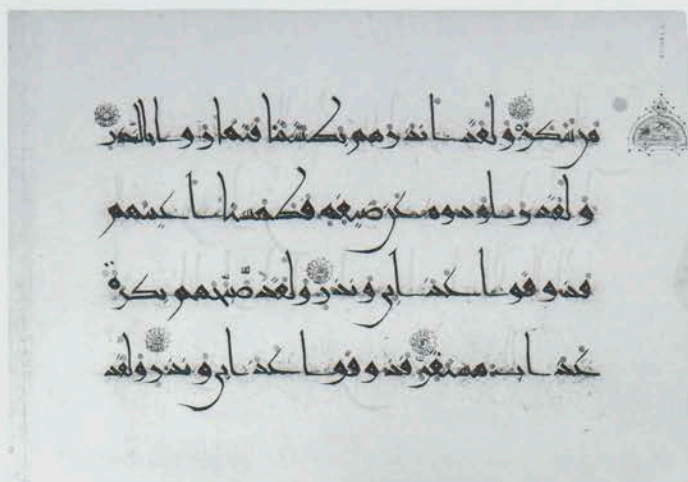 من شكر ولقد أنذرهم بطشتنا فتماروا بالنذر
ولقد راودوه عن ضيفه فطمسنا أعينهم
فذوقوا عذابي ونذر ولقد صبحهم بكرة
عذاب مستقر فذوقوا عذابي ونذر ولقد